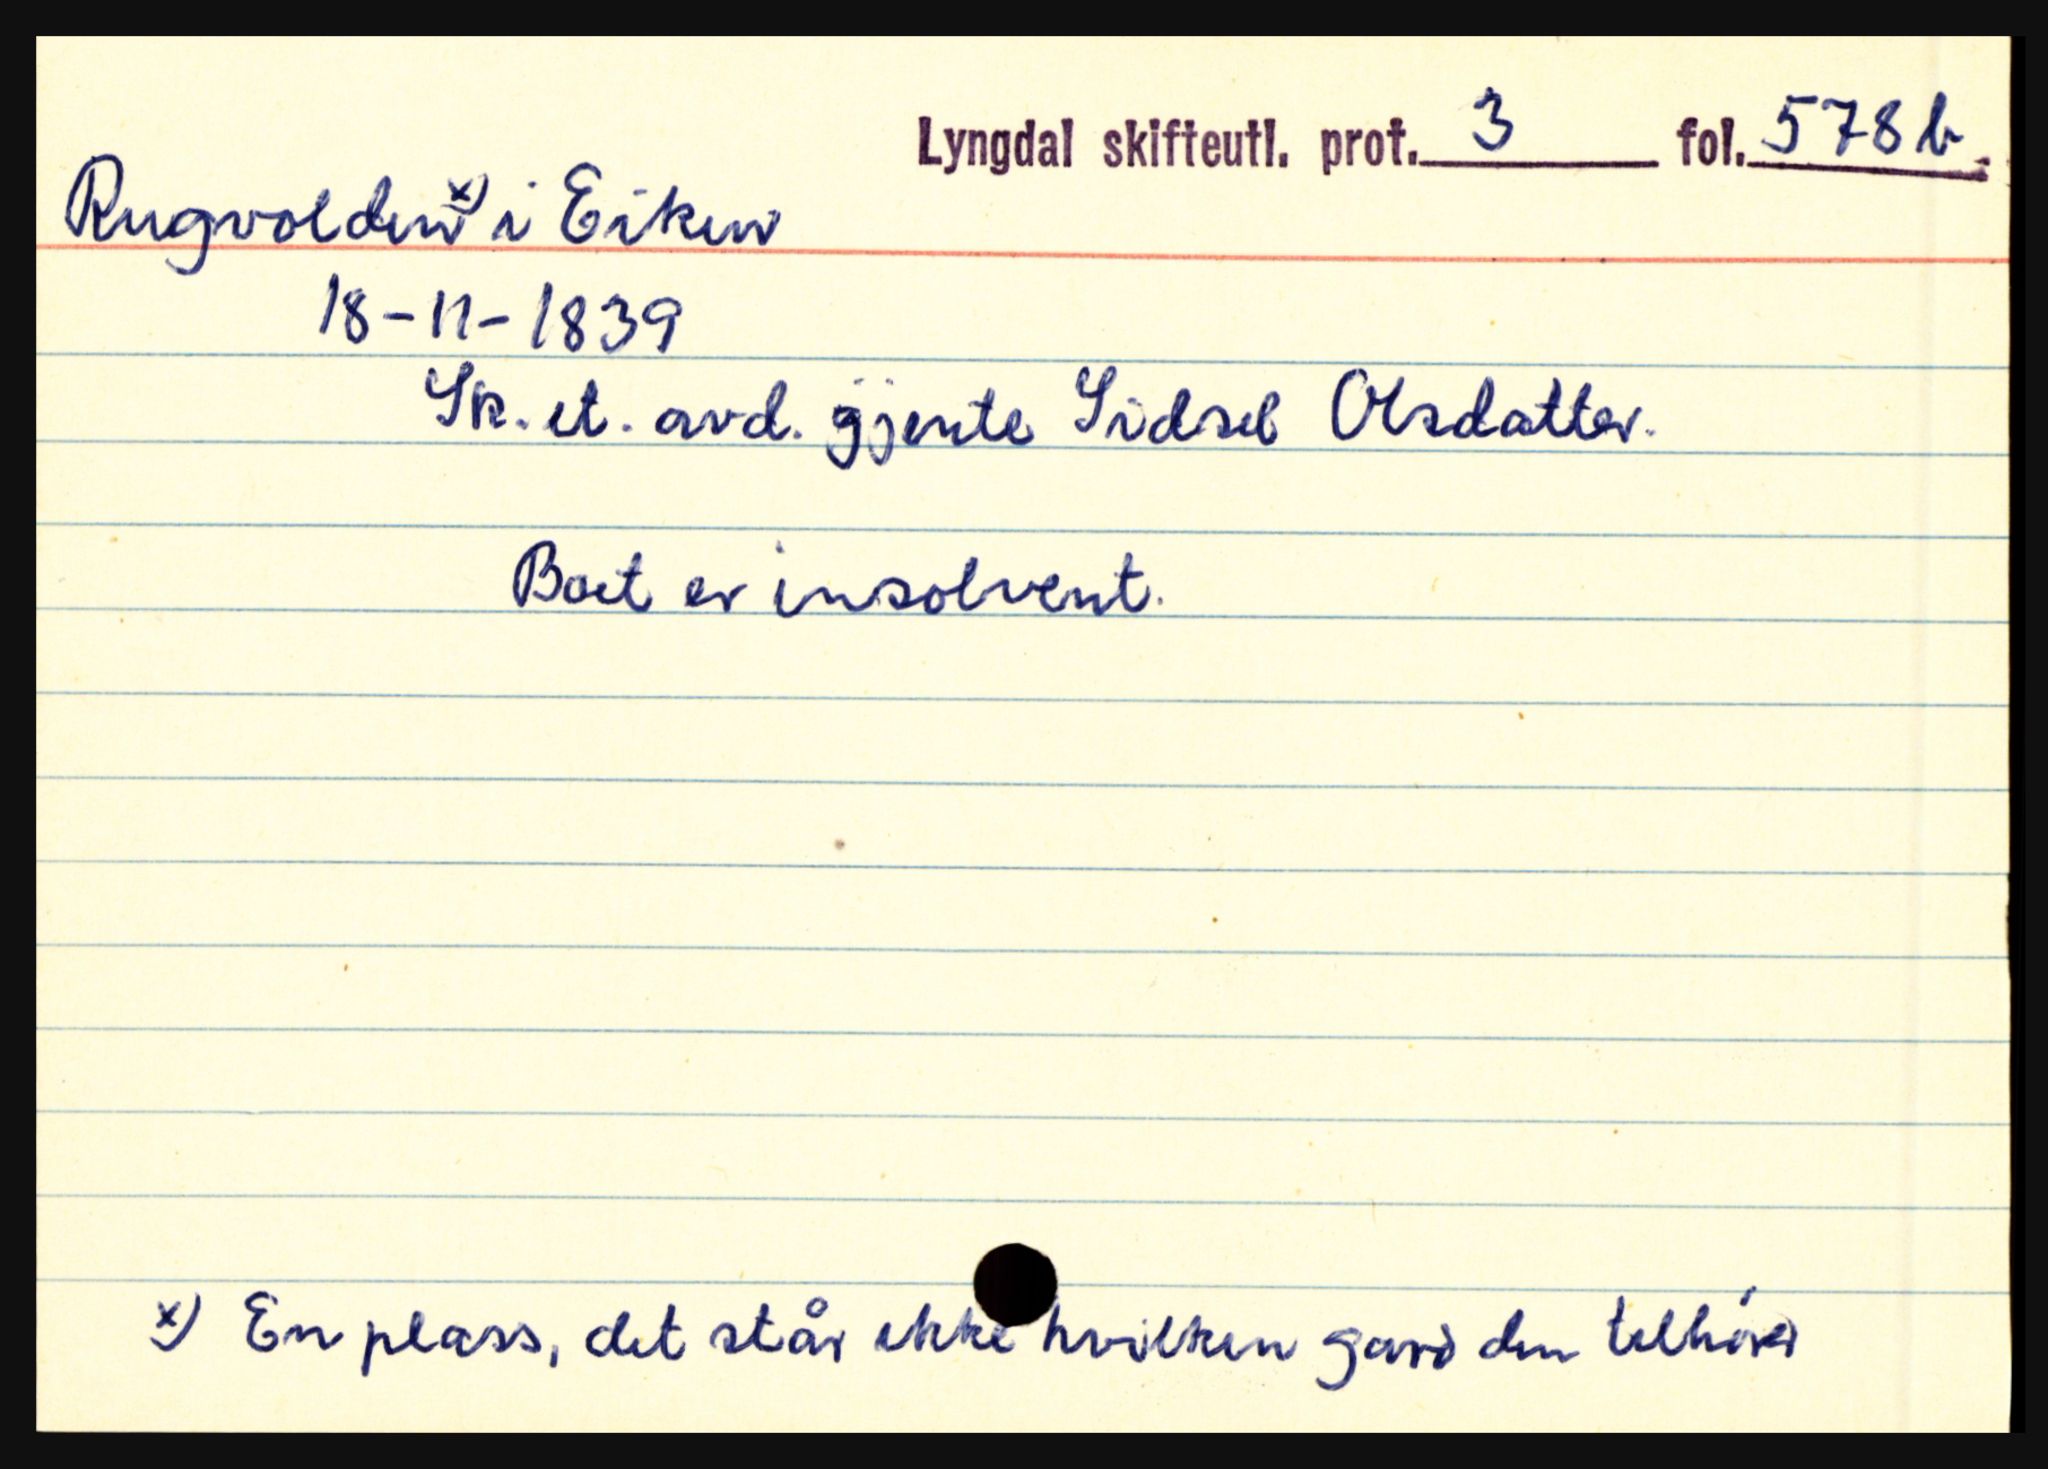 Lyngdal skifteutl. prot. 3 fol. 578b.
Rugvolden x) i Eiken
18-11-1839
Sk. et. avd. gjente Sidsel Olsdatter.
Boet er insolvent.
x) En plass, det står ikke hvilken gard den tilhører